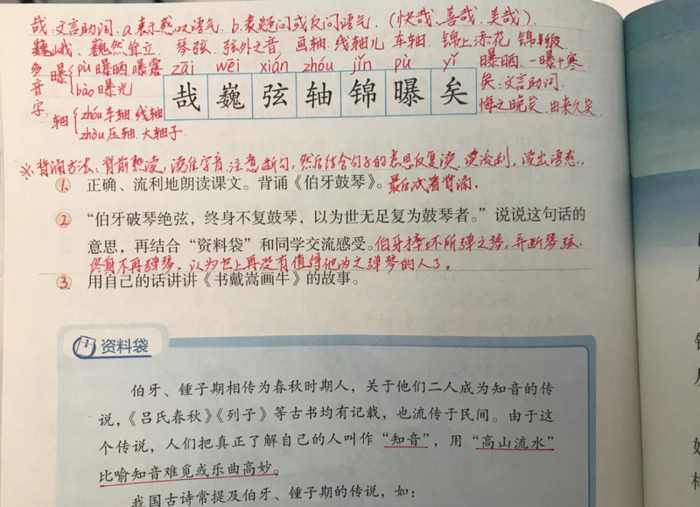 哉:文言助词. a.表示感叹语气. b.表疑问或反问语气. (快哉.善哉.美哉).
巍峨.巍然耸立. 琴弦.弦外之音. 画轴.线轴儿 车轴. 锦上添花. 锦
多音字 曝 pù 曝晒 曝露 zāi wēi xián zhóu jǐn pù yǐ 曝晒.一曝十寒
bào 曝光 哉 巍 弦 轴 锦 曝 矣 矣:文言助词.
轴 zhóu 车轴 线轴 悔之晚矣.由来久矣.
zhòu 压轴 大轴子
※背诵方法:背前熟读,读准字音.注意断句,然后结合句子的意思反复读、读流利,读出语感.
① 正确、流利地朗读课文。背诵《伯牙鼓琴》。最后试着背诵.
② “伯牙破琴绝弦,终身不复鼓琴,以为世无足复为鼓琴者。”说说这句话的
意思,再结合“资料袋”和同学交流感受。伯牙摔坏所弹之琴,弄断琴弦.
终身不再弹琴.认为世上再没有值得他为之弹琴的人了。
③ 用自己的话讲讲《书戴嵩画牛》的故事。
资料袋
伯牙、锺子期相传为春秋时期人,关于他们二人成为知音的传
说,《吕氏春秋》《列子》等古书均有记载,也流传于民间。由于这
个传说,人们把真正了解自己的人叫作“知音”,用“高山流水”
比喻知音难觅或乐曲高妙。
我国古诗常提及伯牙、锺子期的传说,如: